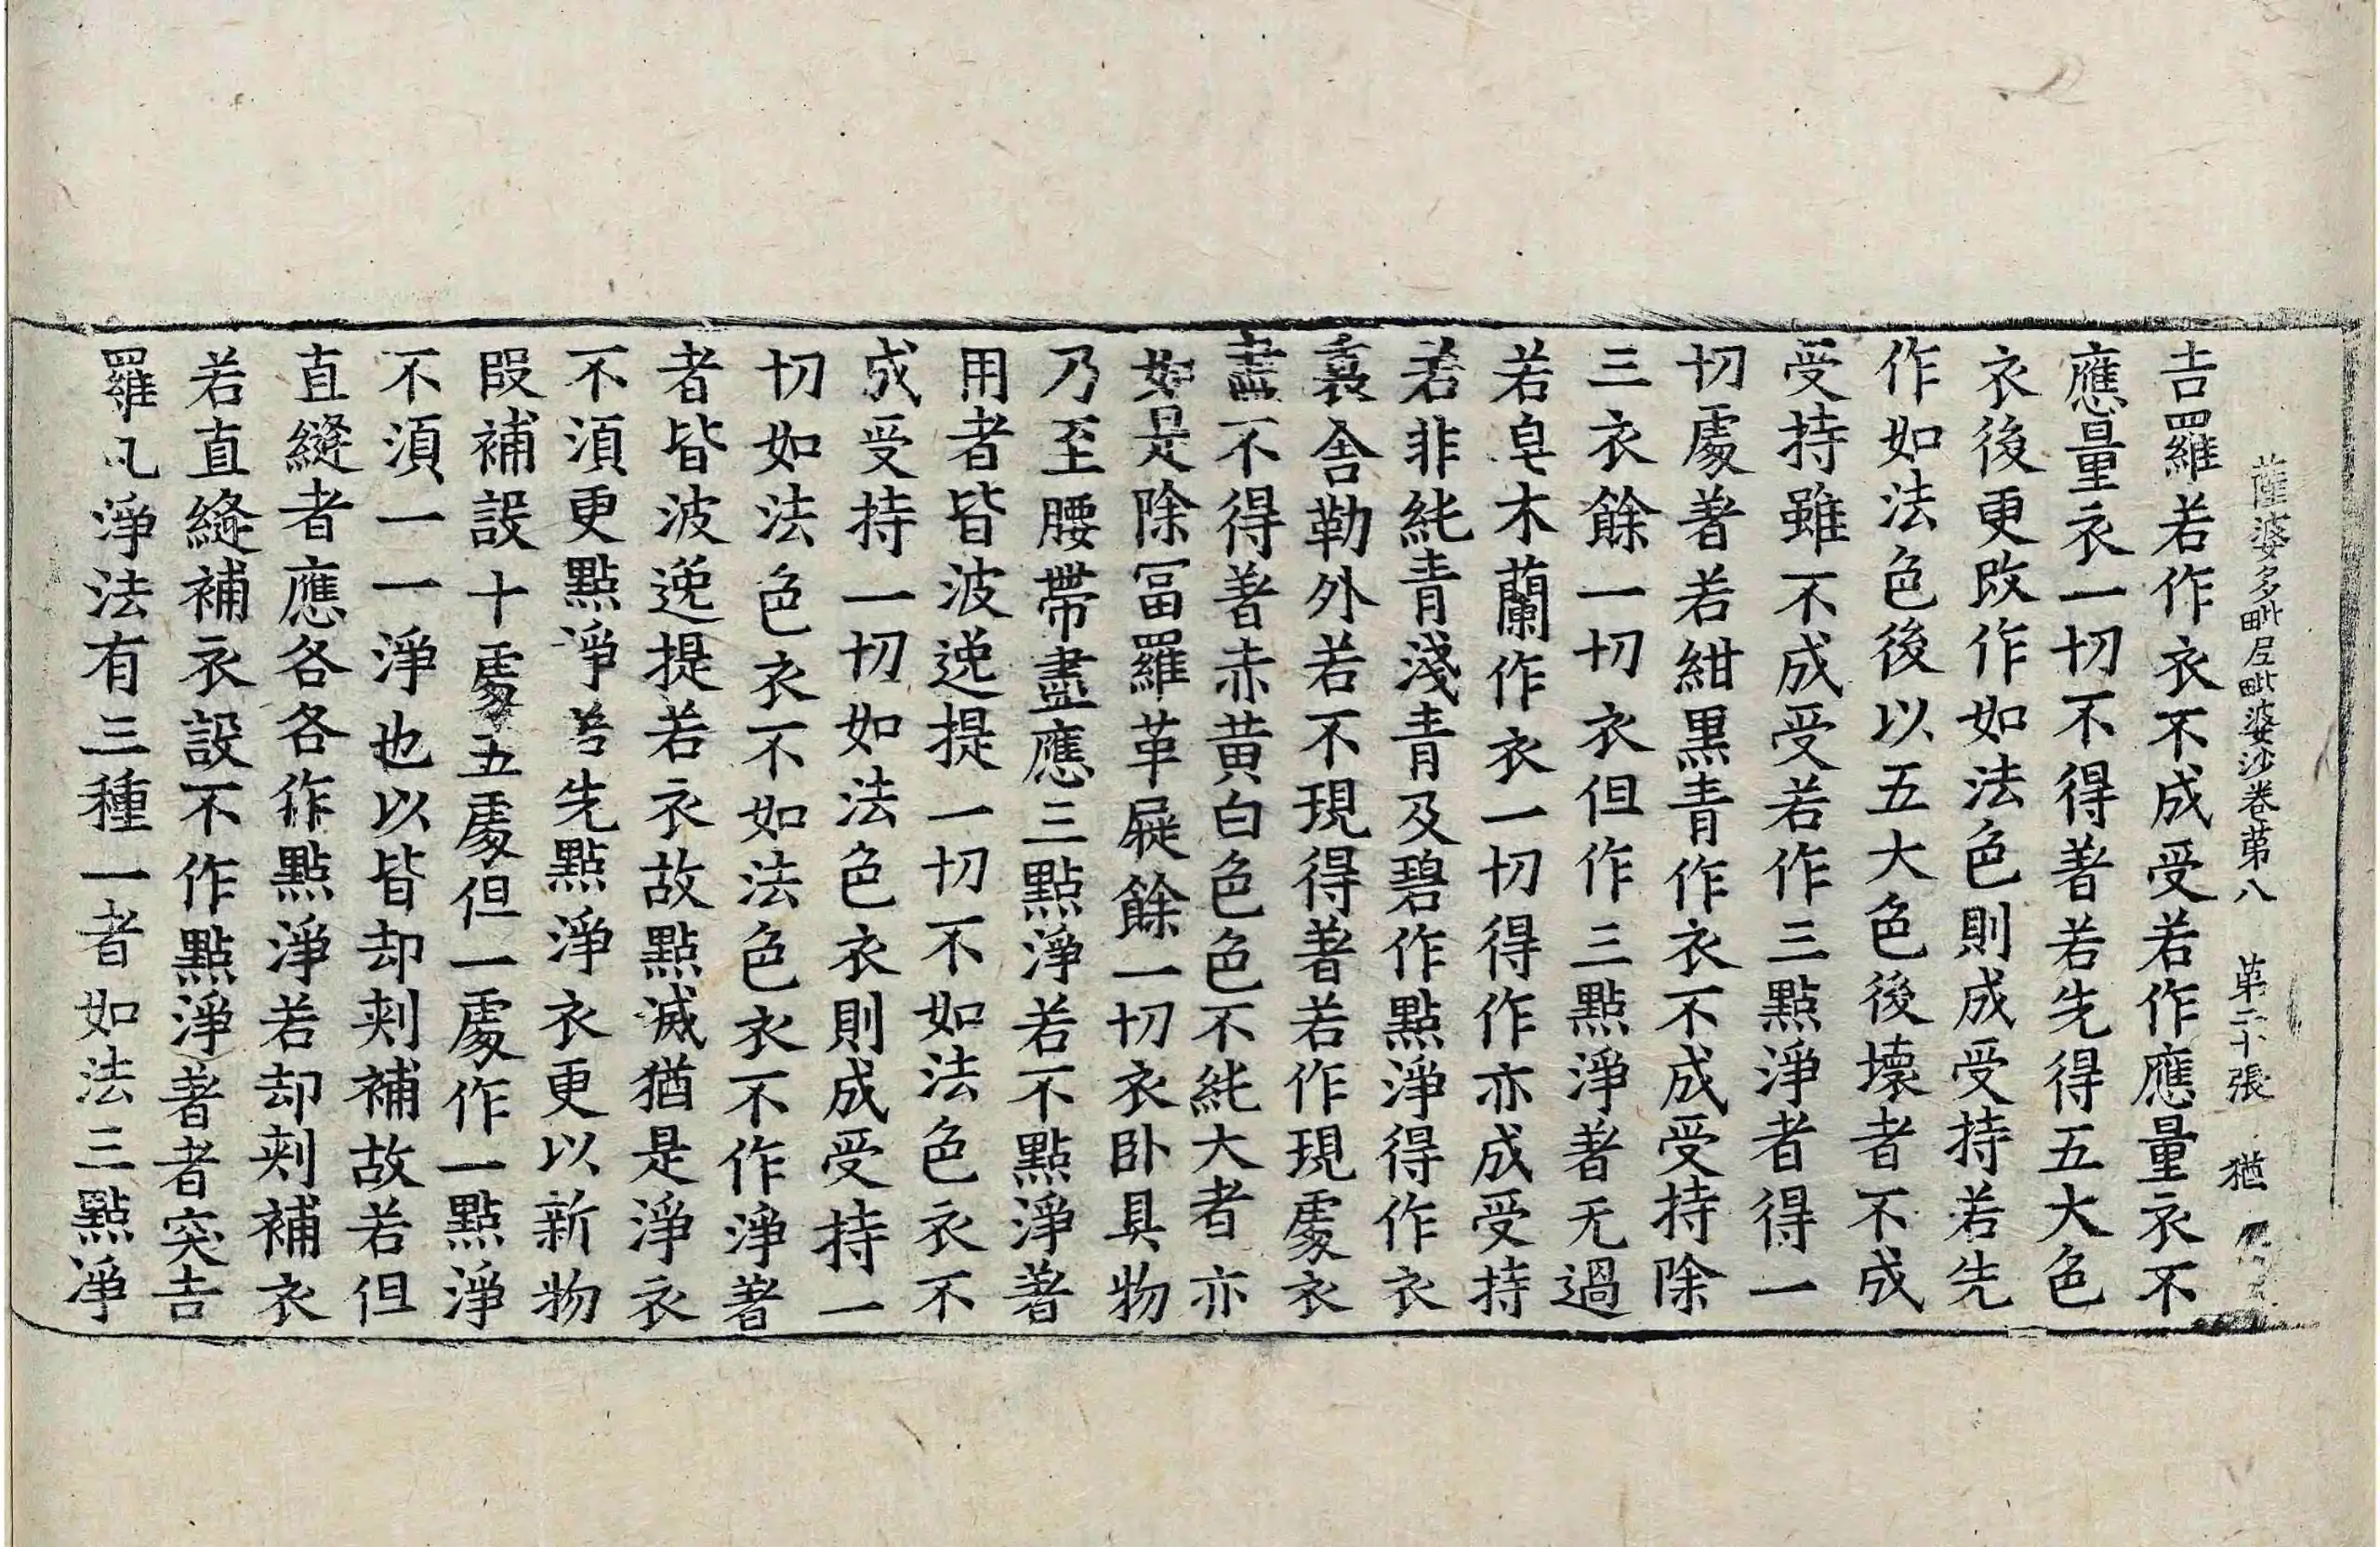 薩婆多毗尼毗婆沙卷第八　第二十張　猶
吉羅若作衣不成受若作應量衣不
應量衣一切不得著若先得五大色
衣後更改作如法色則成受持若先
作如法色後以五大色後壞者不成
受持雖不成受若作三點淨者得一
切處著若紺黑青作衣不成受持除
三衣餘一切衣但作三點淨著无過
若皂木蘭作衣一切得作亦成受持
若非純青淺青及碧作點淨得作衣
裏舍勒外若不現得著若作現處衣
盡不得著赤黃白色色不純大者亦
如是除富羅革屣餘一切衣卧具物
乃至腰帶盡應三點淨若不點淨著
用者皆波逸提一切不如法色衣不
成受持一切如法色衣則成受持一
切如法色衣不如法色衣不作淨著
者皆波逸提若衣故點滅猶是淨衣
不湏更點淨若先點淨衣更以新物
段補設十處五處但一處作一點淨
不湏一一淨也以皆却刺補故若但
直縫者應各各作點淨若却刺補衣
若直縫補衣設不作點淨著者突吉
羅凡淨法有三種一者如法三點淨